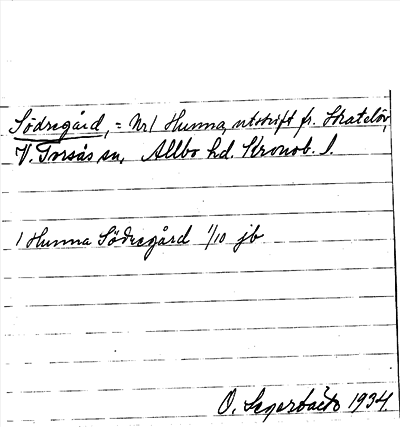 Södregård, = Nr 1 Hunna, utskrift fr. Skatelöv,
V. Torsås sn, Allbo hd. Kronob. l.
1 Hunna Södregård 1/10 jb
O. Segerbäck 1934.